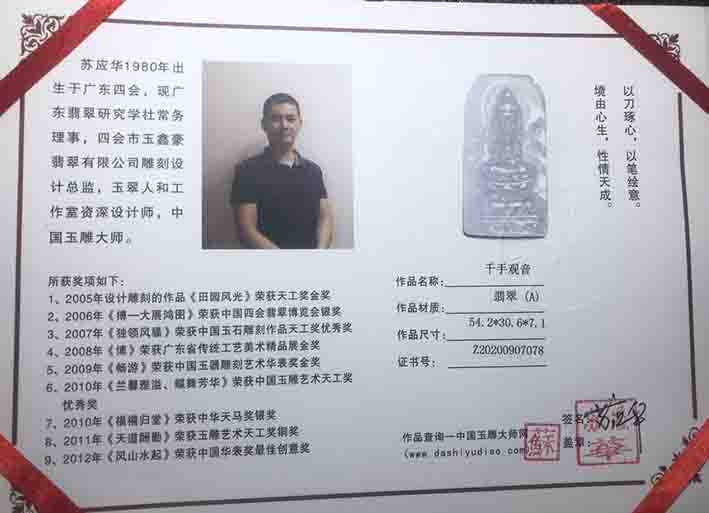 苏应华1980年出
生于广东四会，现广
东翡翠研究学社常务
理事，四会市玉鑫豪
翡翠有限公司雕刻设
计总监，玉翠人和工
作室资深设计师，中
国玉雕大师。
以刀琢心，以笔绘意。
境由心生，性情天成。
所获奖项如下：
1、2005年设计雕刻的作品《田园风光》荣获天工奖金奖
2、2006年《博一大展鸿图》荣获中国四会翡翠博览会银奖
3、2007年《独领风骚》荣获中国玉石雕刻作品天工奖优秀奖
4、2008年《博》荣获广东省传统工艺美术精品展金奖
5、2009年《畅游》荣获中国玉器雕刻艺术华表奖金奖
6、2010年《兰馨雅溢、蝶舞芳华》荣获中国玉雕艺术天工奖
优秀奖
7、2010年《福禄归堂》荣获中华天马奖银奖
8、2011年《天道酬勤》荣获玉雕艺术天工奖铜奖
9、2012年《风山水起》荣获中国华表奖最佳创意奖
作品名称： 千手观音
作品材质： 翡翠 (A)
作品尺寸： 54.2*30.6*7.1
证书号： Z20200907078
签名 苏应华
盖章：
作品查询一中国玉雕大师网
(www.dashiyudiao.com)
蘇